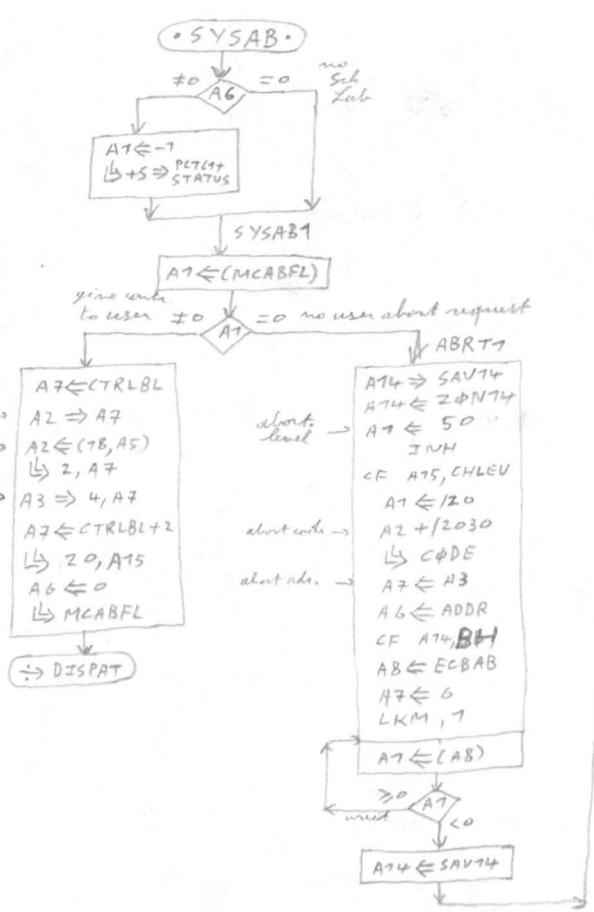 • SYSAB •
≠0
=0
no
Sch
Lab
A6
A1 ⇐ -1
↳ +5 ⇒ PCTL1+
STATUS
SYSAB1
A1 ⇐ (MCABFL)
give contr.
to user
≠0
=0
no user abort request
A1
A7 ⇐ CTRLBL
A2 ⇒ A7
A2 ⇐ (18, A5)
↳ 2, A7
A3 ⇒ 4, A7
A7 ⇐ CTRLBL+2
↳ 20, A15
A6 ⇐ 0
↳ MCABFL
÷> DISPAT
ABRT1
A14 ⇒ SAV14
A14 ⇐ ZØN14
abort.
level →
A1 ⇐ 50
INH
CF A15, CHLEV
A1 ⇐ /20
abort code →
A2 + /2030
↳ CØDE
abort adr. →
A7 ⇐ A3
A6 ⇐ ADDR
CF A14, BH
A8 ⇐ ECBAB
A7 ⇐ 6
LKM, 1
A1 ⇐ (A8)
≥0
A1
wait
<0
A14 ⇐ SAV14